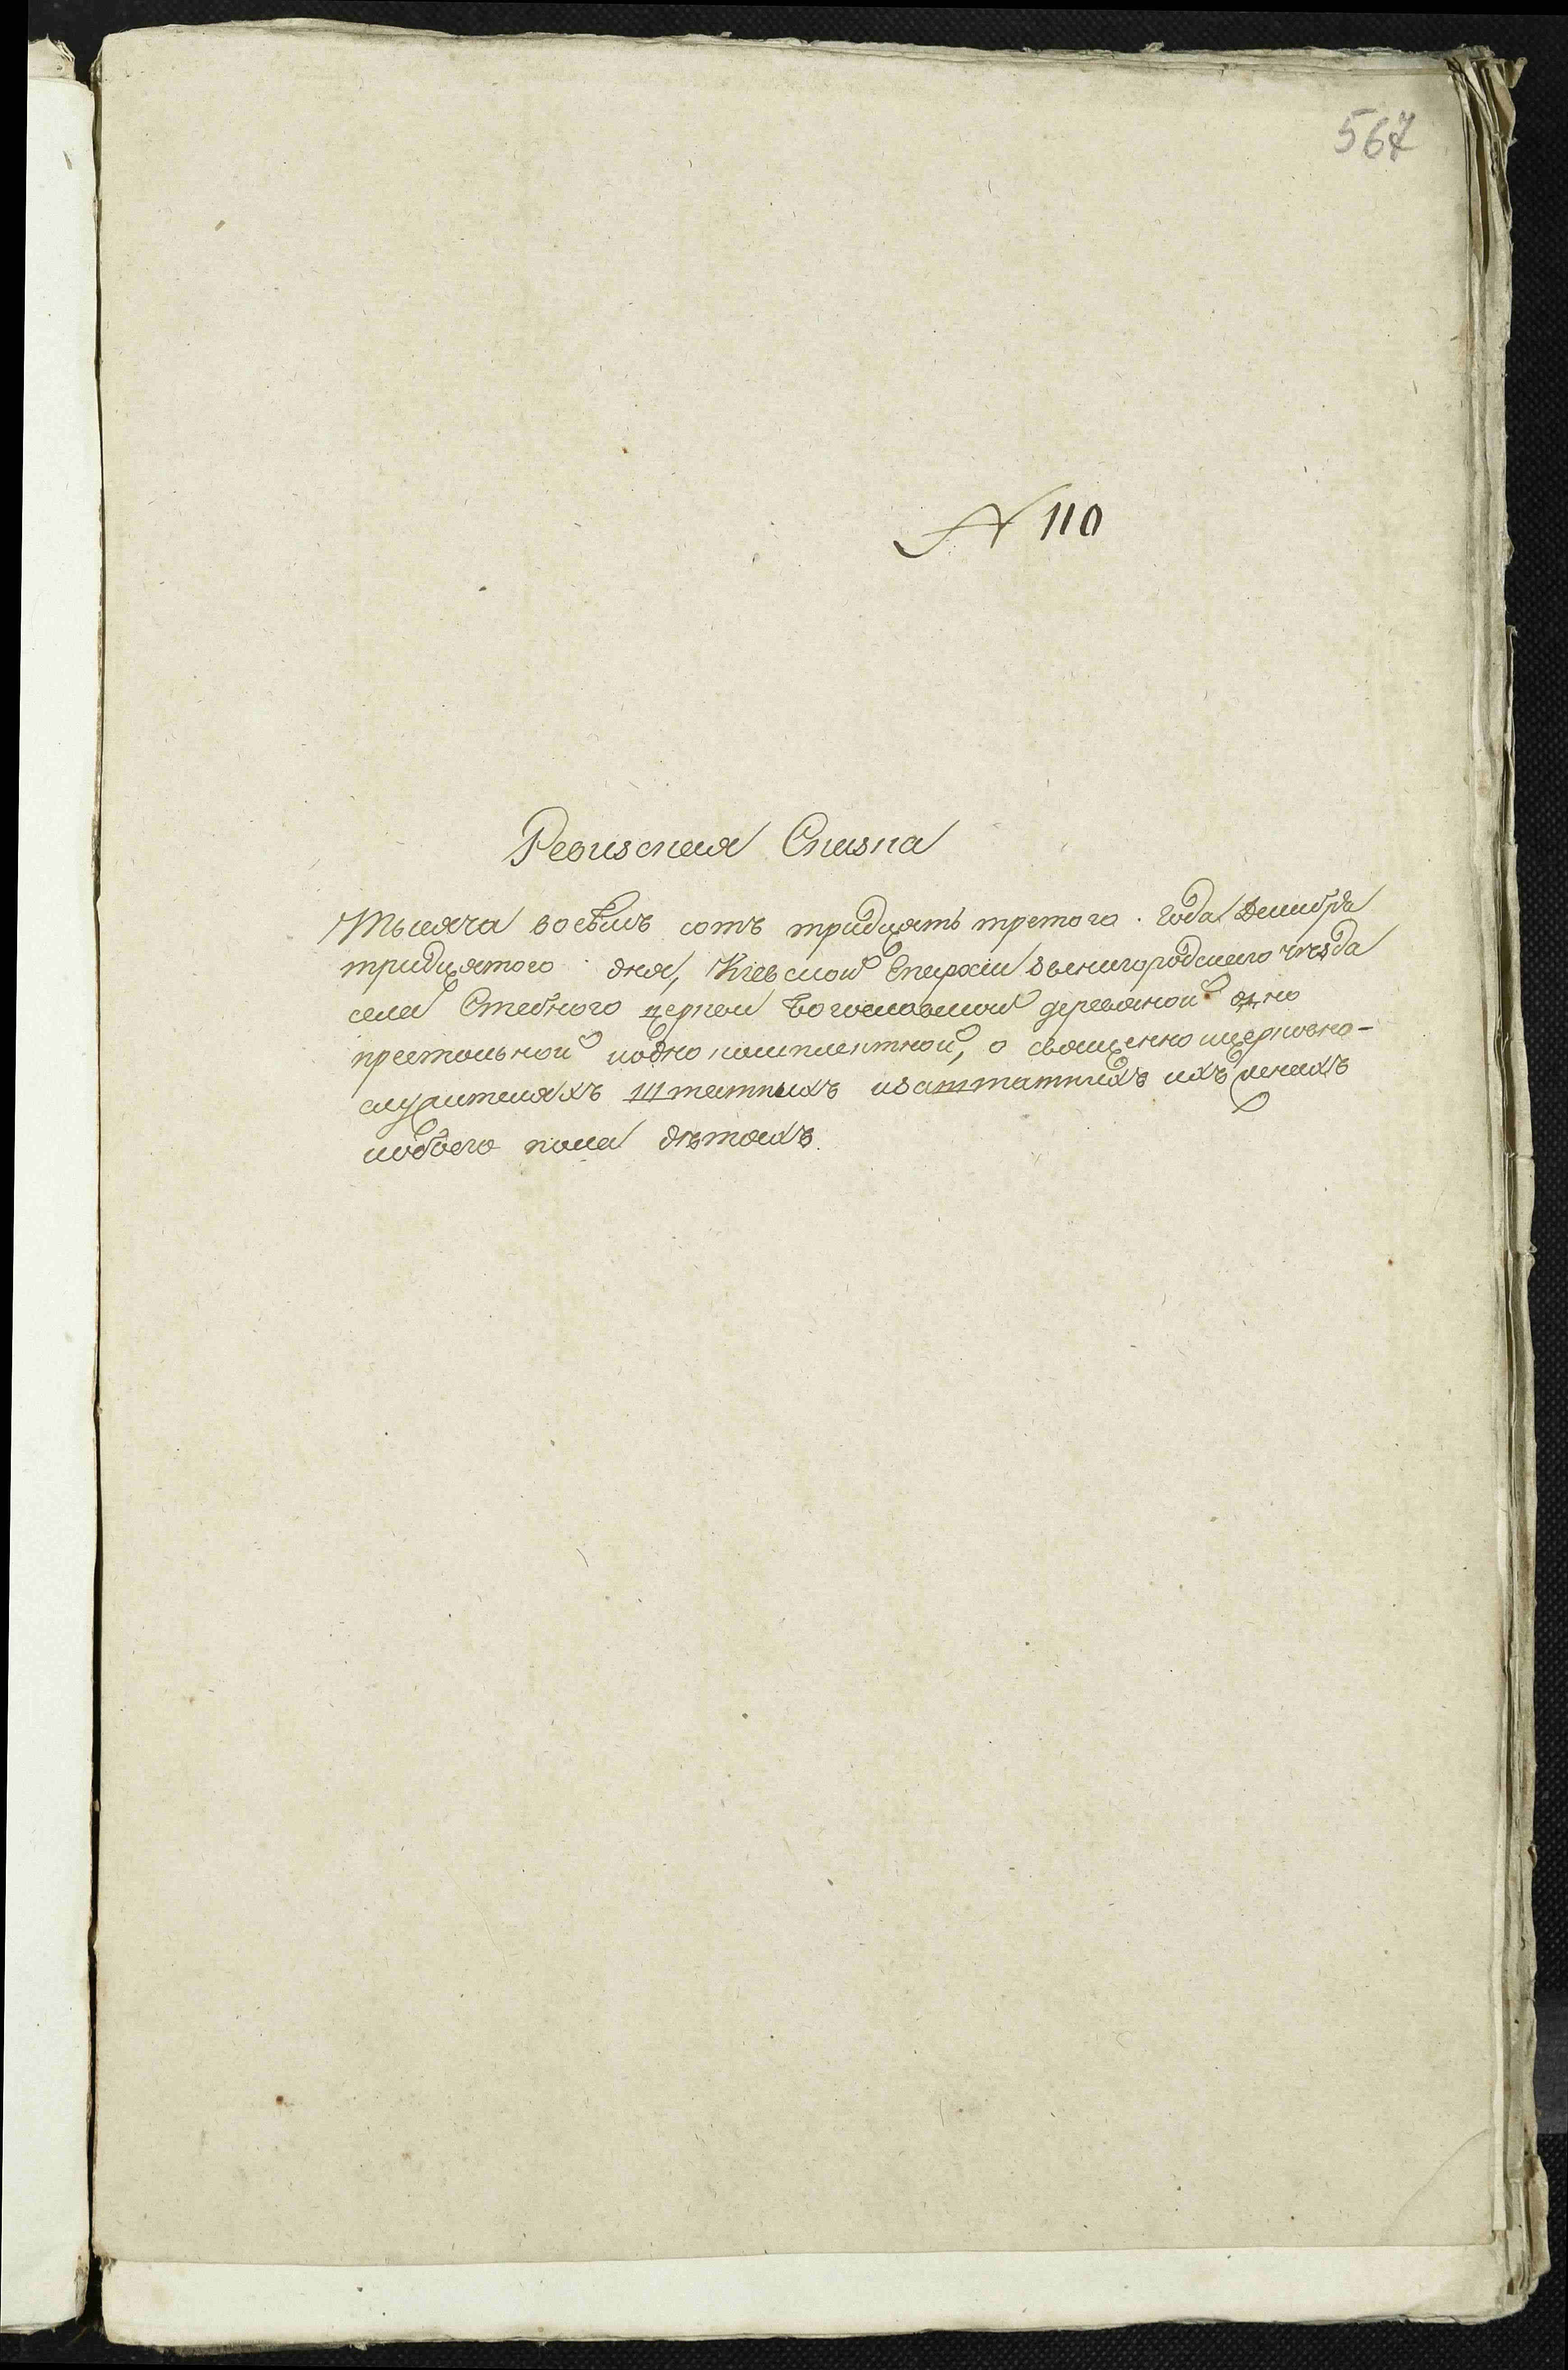 567
N 110
Ревизская Сказка
Тысяча восемь сотъ тридцять третого. года Декабря
тридцятого дня, Кіевской Епархіи звенигородского уезда
села Стебного церкви Богословской деревяной одно
престольной иодно комплектной, о священно ицерковно-
служителяхъ штатныхъ изаштатныхъ ихъ женахъ
иобоего пола дѣтяхъ.